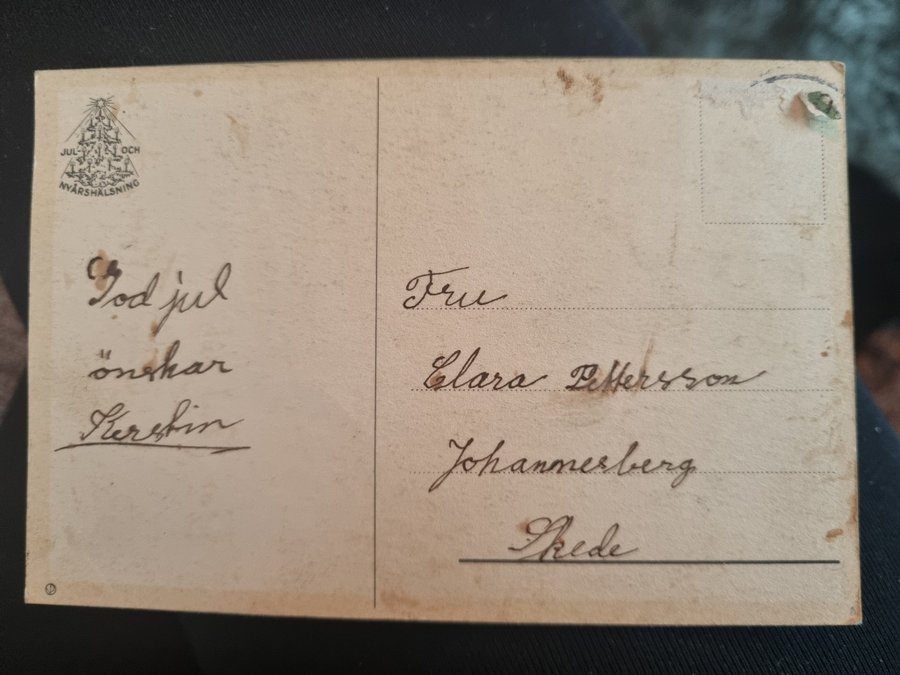 JUL- OCH
NYÅRSHÄLSNING
God jul
önskar
Kerstin
Fru
Clara Pettersson
Johannesberg
Skede